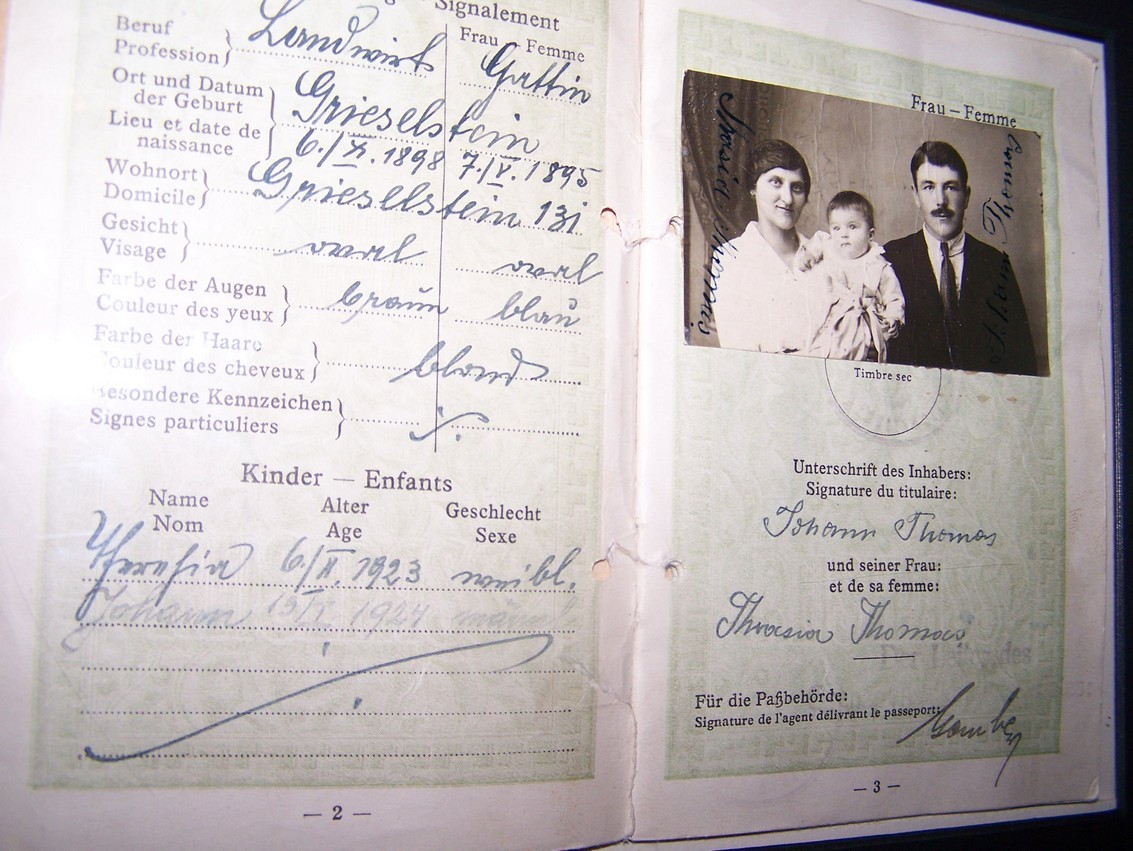 Signalement
Beruf
Profession
Landwirt
Frau – Femme
Gattin
Ort und Datum
der Geburt
Lieu et date de
naissance
Grieselstein
6./XI.1898 7./V.1895
Wohnort
Domicile
Grieselstein 131
Gesicht
Visage
oval oval
Farbe der Augen
Couleur des yeux
braun blau
Farbe der Haare
Couleur des cheveux
blond
Besondere Kennzeichen
Signes particuliers
./.
Kinder — Enfants
Name Alter Geschlecht
Nom Age Sexe
Theresia 6./II. 1923 weibl.
Johann 1924 männl.
— 2 —
Frau – Femme
Thomas
Johann Thomas
Timbre sec
Unterschrift des Inhabers:
Signature du titulaire:
Johann Thomas
und seiner Frau:
et de sa femme:
Therasia Thomas
Für die Paßbehörde:
Signature de l'agent délivrant le passeport:
— 3 —